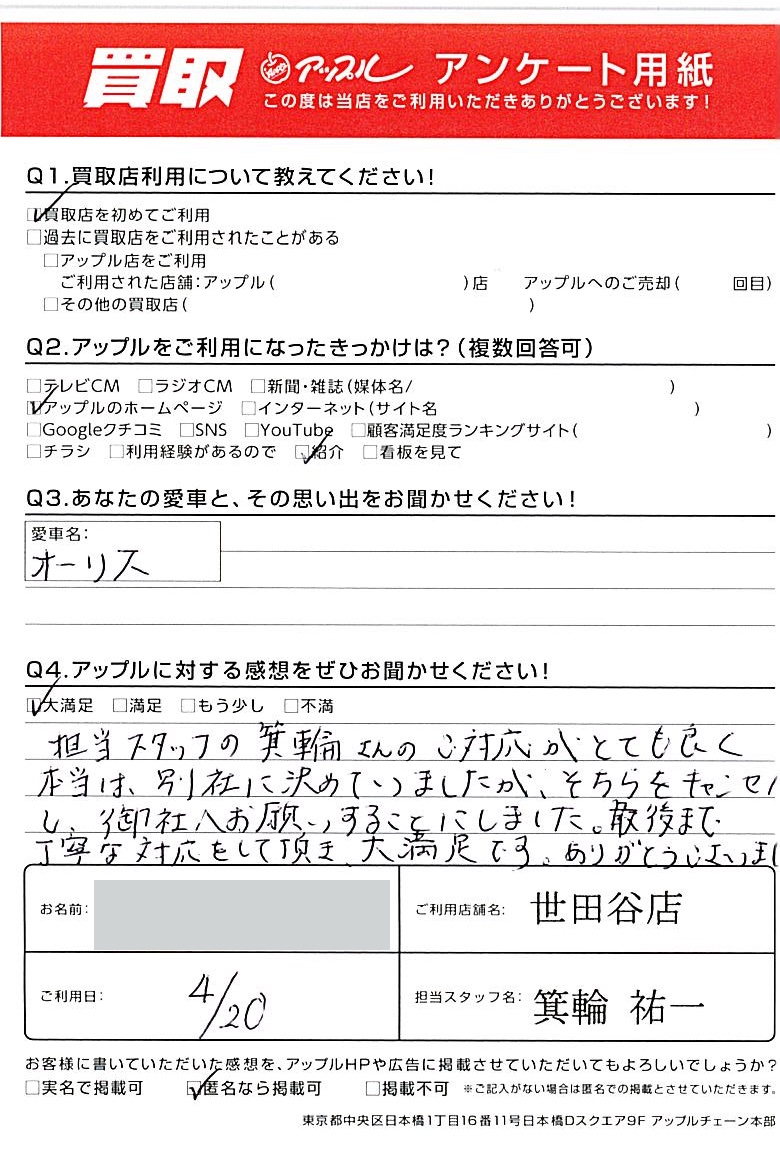 買取 アップル アンケート用紙
この度は当店をご利用いただきありがとうございます!
Q1.買取店利用について教えてください!
☑買取店を初めてご利用
□過去に買取店をご利用されたことがある
□アップル店をご利用
ご利用された店舗:アップル( )店 アップルへのご売却( 回目)
□その他の買取店( )
Q2.アップルをご利用になったきっかけは?(複数回答可)
□テレビCM □ラジオCM □新聞・雑誌(媒体名/ )
☑アップルのホームページ □インターネット(サイト名 )
□Googleクチコミ □SNS □YouTube □顧客満足度ランキングサイト( )
□チラシ □利用経験があるので ☑紹介 □看板を見て
Q3.あなたの愛車と、その思い出をお聞かせください!
愛車名:
オーリス
Q4.アップルに対する感想をぜひお聞かせください!
☑大満足 □満足 □もう少し □不満
担当スタッフの箕輪さんのご対応がとても良く
本当は、別社に決めていましたが、そちらをキャンセル
し、御社へお願いすることにしました。最後まで
丁寧な対応をして頂き、大満足です。ありがとうございまし
お名前: ご利用店舗名: 世田谷店
ご利用日: 4/20 担当スタッフ名: 箕輪 祐一
お客様に書いていただいた感想を、アップルHPや広告に掲載させていただいてもよろしいでしょうか?
□実名で掲載可 ☑匿名なら掲載可 □掲載不可 ※ご記入がない場合は匿名での掲載とさせていただきます。
東京都中央区日本橋1丁目16番11号日本橋Dスクエア9F アップルチェーン本部